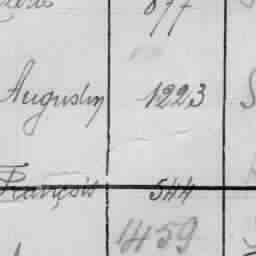 877
Augustin 1223
François 544
1459